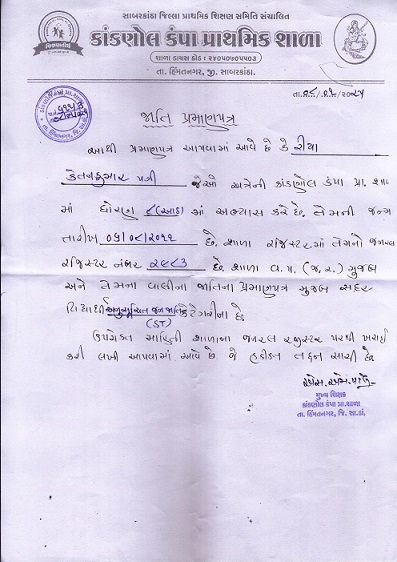 સાબરકાંઠા જિલ્લા પ્રાથમિક શિક્ષણ સમિતિ સંચાલિત
કાંકણોલ કંપા પ્રાથમિક શાળા
શાળા ડાયસ કોડ : ૨૪૦૫૦૭૦૫૫૦૩
તા. હિંમતનગર, જી. સાબરકાંઠા.
જાતિ પ્રમાણપત્ર
આથી પ્રમાણપત્ર આપવામાં આવે છે કે રીયા
કેતનકુમાર પગી જેઓ અત્રેની કાંકણોલ કંપા પ્રા. શાળા
માં ધોરણ ૮(આઠ) માં અભ્યાસ કરે છે. તેમની જન્મ
તારીખ ૦૫/૦૮/૨૦૧૧ છે. શાળા રજિસ્ટરમાં તેમનો જનરલ
રજિસ્ટર નંબર ૨૯૮૩ છે. શાળા વ.પ. (જ.ર.) મુજબ
અને તેમના વાલીના જાતિના પ્રમાણપત્ર મુજબ સદર
વિદ્યાર્થી અનુસૂચિત જન જાતિ કેટેગરીના છે.
(ST)
ઉપરોક્ત માહિતી શાળાના જનરલ રજીસ્ટર પરથી ખરાઈ
કરી લખી આપવામાં આવે છે જે હકીકત તદ્દન સાચી છે.
મુખ્ય શિક્ષક
કાંકણોલ કંપા પ્રા.શાળા
તા. હિંમતનગર, જિ. સા.કાં.